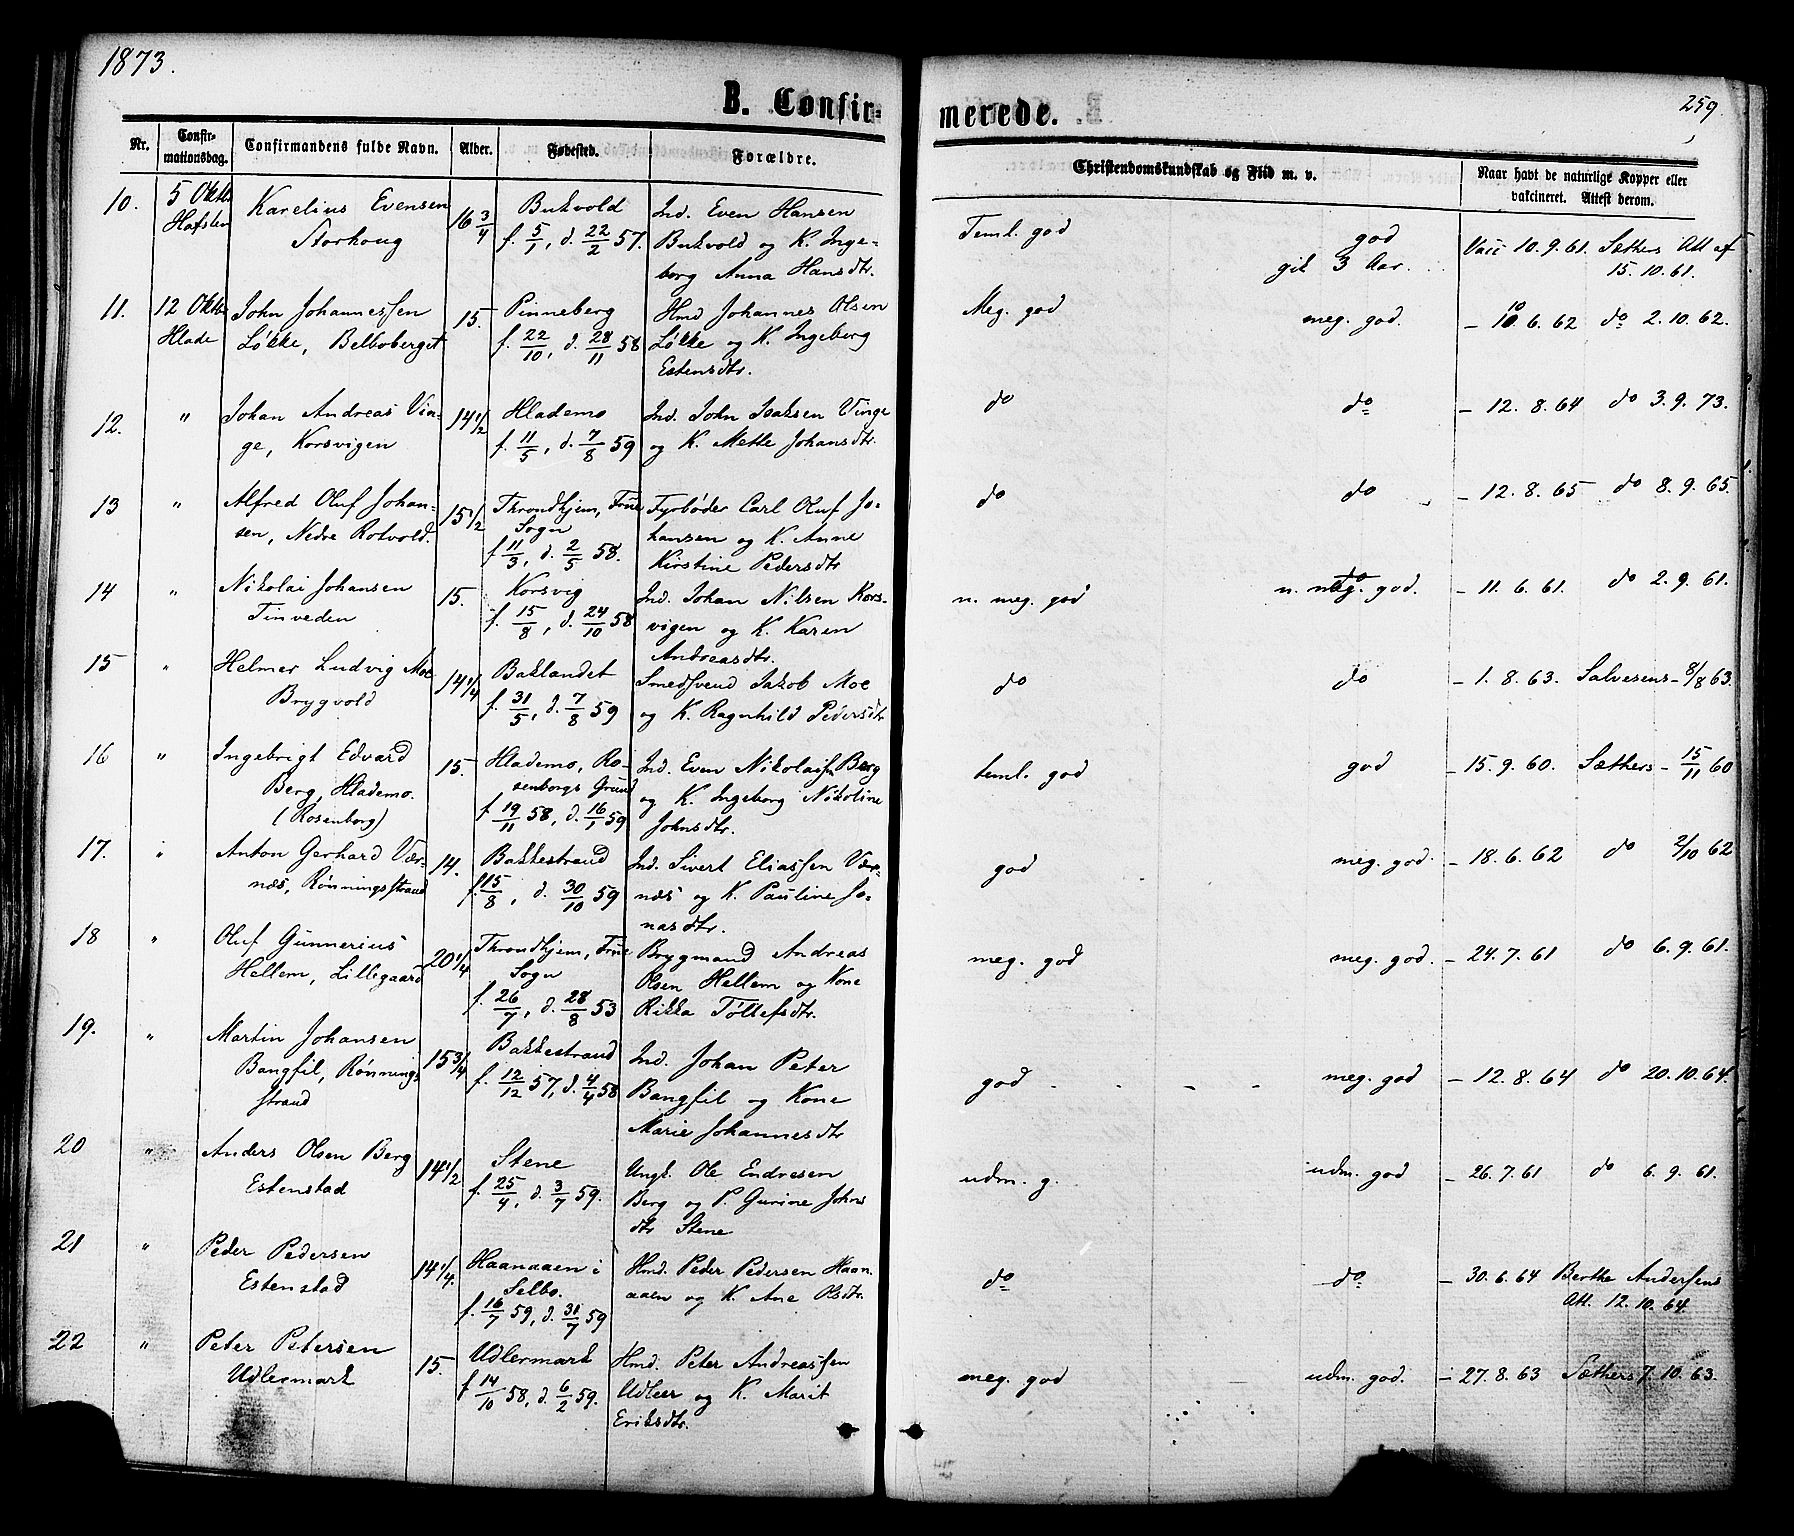 1873.
B. Confir-
merede.
259
Nr.
Confir-
mationsdag.
Confirmandens fulde Navn.
Alder.
Fødested.
Forældre.
Christendomskundskab og Flid m. v.
Naar havt de naturlige Kopper eller
vakcineret. Attest derom.
10. 5 Oktb. Karelius Evensen 16 3/4 Bukvold Ind. Even Hansen Teml. god god Vacc 10. 9. 61. Sæthers Att af
Storhoug f. 5/1, d. 22/2 57. Bukvold og K. Inge- gik 3 Aar. 15. 10. 61.
borg Anna Hansdtr.
11. 12 Oktb. John Johannessen 15. Pinneberg Hmd Johannes Olsen Meg. god meg. god. - 10. 6. 62 do 2. 10. 62.
Hlade Løkke, Belboberget f. 22/10, d. 28/11 58 Løkke og K. Ingeborg
Estensdtr.
12. " Johan Andreas Vin- 14 1/2 Hlademo Ind. John Isaksen Vinge do do - 12. 8. 64 do 3. 9. 73.
ge, Korsvigen f. 11/5, d. 7/8 59 og K. Mette Johansdtr.
13 " Alfred Oluf Johan- 15 1/2 Throndhjem, Frue Fyrbøder Carl Oluf Jo- do do - 12. 8. 65 do 8. 9. 65.
sen, Nedre Rotvold. Sogn hansen og K. Anne
f. 11/3, d. 2/5 58. Kirstine Pedersdtr
14 " Nikolai Johansen 15. Korsvig Ind. Johan Nilsen Kors- n. meg. god n. meg. god. - 11. 6. 61. do 2. 9. 61.
Tinveden f. 15/8, d. 24/10 58 vigen og K. Karen
Andreasdtr.
15 " Helmer Ludvig Moe 14 1/4 Baklandet Smedsvend Jakob Moe do do - 1. 8. 63. Salvesens - 8/8 63.
Brygvold f. 31/5, d. 7/8 59 og K. Ragnhild Pedersdtr
16 " Ingebrigt Edvard 15. Hlademo, Ro- Ind. Even Nikolaisn Berg teml. god god - 15. 9. 60. Sæthers - 15/11 60
Berg, Hlademo. senborgs Grund og K. Ingeborg Nikoline
(Rosenborg) f. 19/11 58, d. 16/1 59 Johnsdtr.
17. " Anton Gerhard Vær- 14. Bakkestrand Ind. Sivert Eliassen Vær- god meg. god. - 18. 6. 62 do 2/10 62
næs, Rønningsstrand f. 15/8, d. 30/10 59 næs og K. Pauline Jo-
nasdtr.
18 " Oluf Gunnerius 20 1/4 Throndhjem, Frue Brygmand Andreas meg. god meg. god. - 24. 7. 61 do 6. 9. 61.
Hellem, Lillegaard Sogn Olsen Hellem og Kone
f. 26/7, d. 28/8 53 Rikka Tøllefsdtr.
19. " Martin Johansen 15 3/4 Bakkestrand Ind. Johan Peter god meg. god - 12. 8. 64 do 20. 10. 64.
Bangfil, Rønnings f. 12/12 57, d. 4/4 58 Bangfil og Kone
strand Marie Johannesdtr
20 " Anders Olsen Berg 14 1/2 Stene Ungk. Ole Endresen udm. g. udm. god - 26. 7. 61 do 6. 9. 61.
Estenstad f. 25/4, d. 3/7 59. Berg og P. Gurine Johns
dtr Stene
21 " Peder Pedersen 14 1/4. Haanaaen i Hmd. Peder Pedersen Haan- do do - 30. 6. 64 Berthe Andersens
Estenstad Selbo. aaen og K. Ane Olsdtr. Att. 12. 10. 64.
f. 16/7 59, d. 31/7 59
22 " Peter Petersen 15. Udlermark Hmd. Peter Andreassen meg. god udm. god. - 27. 8. 63 Sæthers 7. 10. 63.
Udlermark f. 14/10 58, d. 6/2 59. Udleer og K. Marit
Eriksdtr.